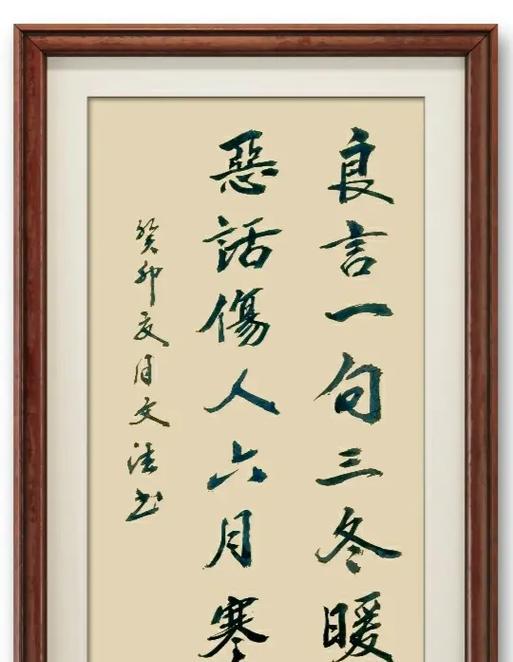 良言一句三冬暖
惡話傷人六月寒
癸卯夏月文法书